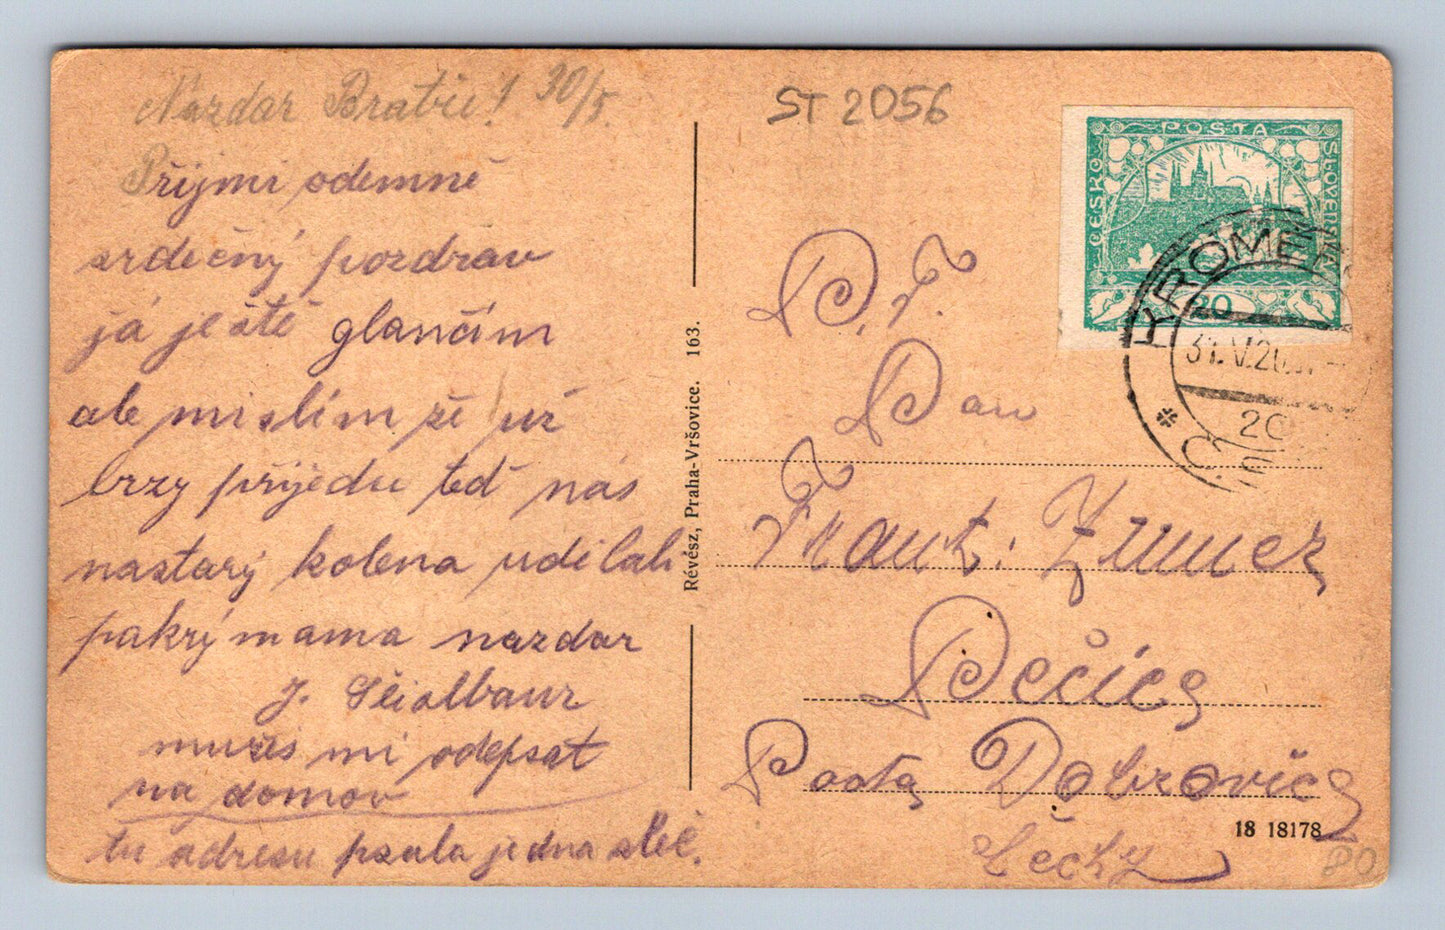 Nazdar Bratře! 30/5.
Přijmi odemně
srdečný pozdrav
já ještě glančím
ale mislím že už
brzy přijedu teď nás
nastarý kolena udělali
pakrý mama nazdar
J.
mužeš mi odepsat
na domov
tu adresu psala jedna sleč.
Révész, Praha-Vršovice. 163.
ST 2056
POŠTA
ČESKO
SLOVENSKÁ
20
KROMĚ
31.V.20
20
P. T.
Pan
Frant. Zimmer
Pečice
Posta Dobrovice
Čechy
18 18178
80